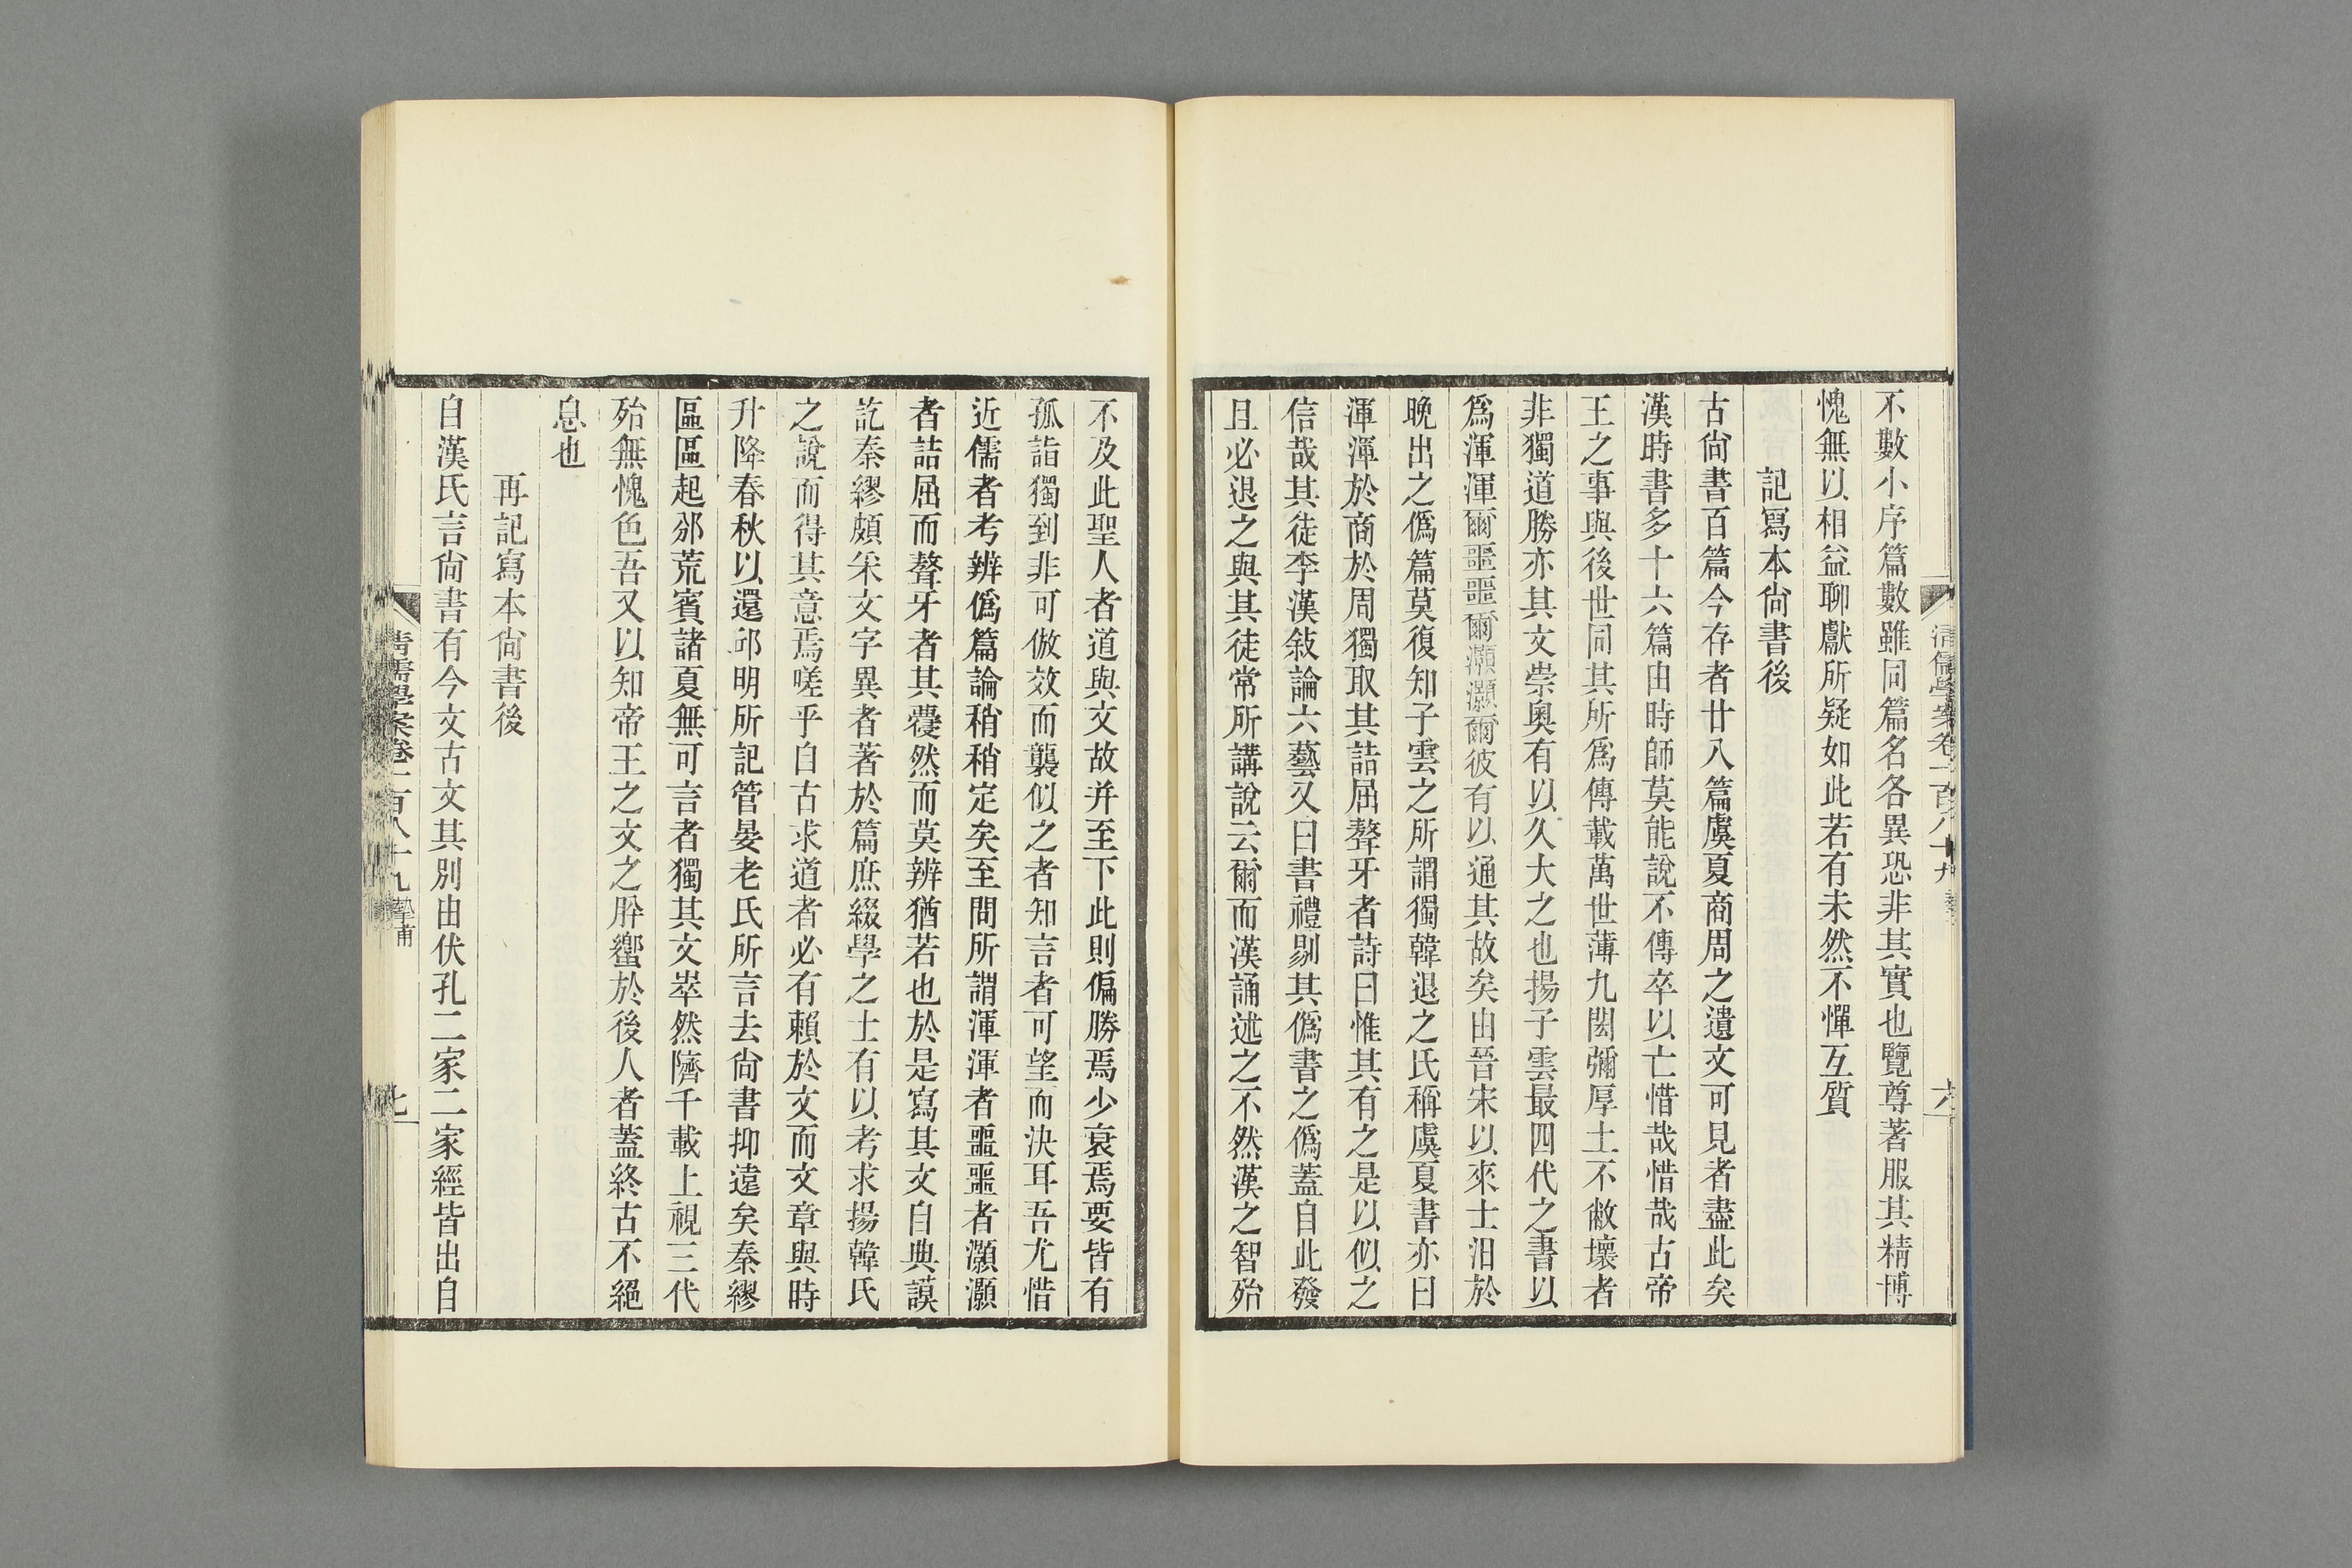 不數小序篇數雖同篇名各異恐非其實也覽尊著服其精博
愧無以相益聊獻所疑如此若有未然不憚互質
記寫本尙書後
古尙書百篇今存者廿八篇虞夏商周之遺文可見者盡此矣
漢時書多十六篇由時師莫能說不傳卒以亡惜哉惜哉古帝
王之事與後世同其所爲傳載萬世薄九閎彌厚土不敝壞者
非獨道勝亦其文崇奧有以久大之也揚子雲最四代之書以
爲渾渾爾噩噩爾灝灝爾彼有以通其故矣由晉宋以來士汩於
晚出之僞篇莫復知子雲之所謂獨韓退之氏稱虞夏書亦曰
渾渾於商於周獨取其詰屈聱牙者詩曰惟其有之是以似之
信哉其徒李漢敍論六藝又曰書禮剔其僞書之僞蓋自此發
且必退之與其徒常所講說云爾而漢誦述之不然漢之智殆
清儒學案卷一百八十九
六
不及此聖人者道與文故并至下此則偏勝焉少衰焉要皆有
孤詣獨到非可倣效而襲似之者知言者可望而決耳吾尤惜
近儒者考辨僞篇論稍稍定矣至問所謂渾渾者噩噩者灝灝
者詰屈而聱牙者其敻然而莫辨猶若也於是寫其文自典謨
訖秦繆頗采文字異者著於篇庶綴學之士有以考求揚韓氏
之說而得其意焉嗟乎自古求道者必有賴於文而文章與時
升降春秋以還邱明所記管晏老氏所言去尙書抑遠矣秦繆
區區起邠荒賓諸夏無可言者獨其文崒然隮千載上視三代
殆無愧色吾又以知帝王之文之肸蠁於後人者蓋終古不絕
息也
再記寫本尙書後
自漢氏言尙書有今文古文其別由伏孔二家二家經皆出自
清儒學案卷一百八十九 摯甫
七